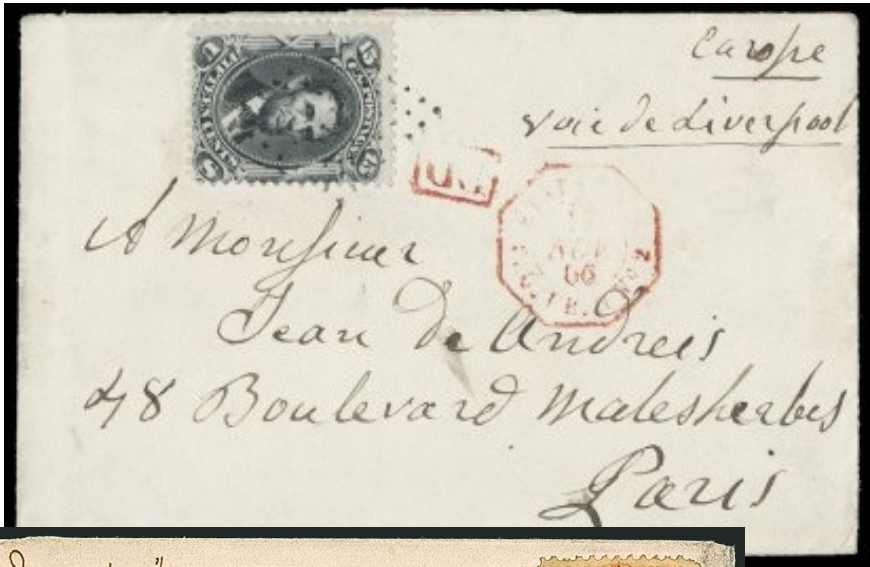 Europe
voie de Liverpool
15
P.D.
66
No. 2
A Monsieur
Jean de Andreis
48 Boulevard Malesherbes
Paris